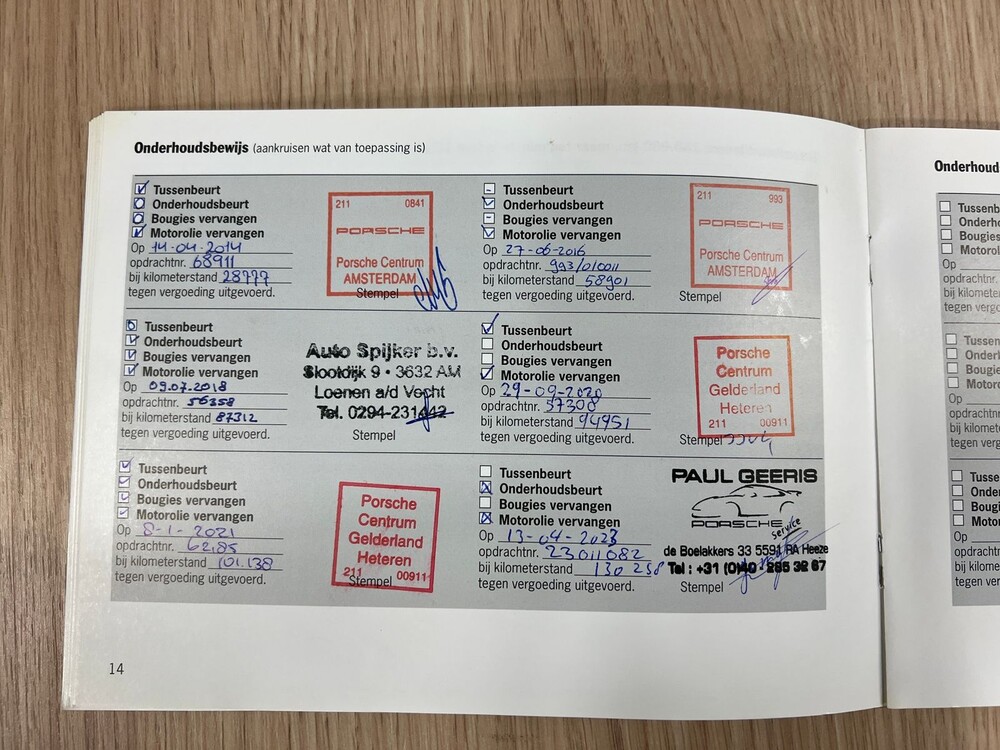 Onderhoudsbewijs (aankruisen wat van toepassing is)
Tussenbeurt
Onderhoudsbeurt
Bougies vervangen
Motorolie vervangen
Op 14-04-2014
opdrachtnr. 68911
bij kilometerstand 28777
tegen vergoeding uitgevoerd.
211 0841
PORSCHE
Porsche Centrum
AMSTERDAM
Stempel
Tussenbeurt
Onderhoudsbeurt
Bougies vervangen
Motorolie vervangen
Op 27-06-2016
opdrachtnr. 993/010011
bij kilometerstand 58901
tegen vergoeding uitgevoerd.
211 993
PORSCHE
Porsche Centrum
AMSTERDAM
Stempel
Tussenbeurt
Onderhoudsbeurt
Bougies vervangen
Motorolie vervangen
Op 09.07.2018
opdrachtnr. 56358
bij kilometerstand 87312
tegen vergoeding uitgevoerd.
Auto Spijker b.v.
Slootdijk 9 • 3632 AM
Loenen a/d Vecht
Tel. 0294-231442
Stempel
Tussenbeurt
Onderhoudsbeurt
Bougies vervangen
Motorolie vervangen
Op 29-09-2020
opdrachtnr. 57308
bij kilometerstand 94451
tegen vergoeding uitgevoerd.
Porsche
Centrum
Gelderland
Heteren
211 00911
Stempel
Tussenbeurt
Onderhoudsbeurt
Bougies vervangen
Motorolie vervangen
Op 8-1-2021
opdrachtnr. 62185
bij kilometerstand 101.138
tegen vergoeding uitgevoerd.
Porsche
Centrum
Gelderland
Heteren
211 00911
Stempel
Tussenbeurt
Onderhoudsbeurt
Bougies vervangen
Motorolie vervangen
Op 13-04-2023
opdrachtnr. 23011082
bij kilometerstand 130 258
tegen vergoeding uitgevoerd.
PAUL GEERIS
PORSCHE service
de Boelakkers 33 5591 RA Heeze
Tel : +31 (0)40 - 285 32 67
Stempel
14
Onderhoud
Tussenb
Onderho
Bougies
Motorol
Op
opdrachtnr.
bij kilomete
tegen vergo
Tussen
Onderh
Bougie
Motoro
Op
opdrachtn
bij kilom
tegen verg
Tusse
Onde
Boug
Moto
Op
opdracht
bij kilon
tegen ver